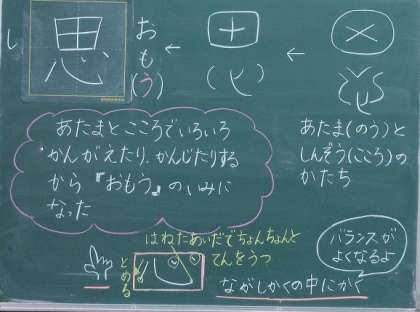 思
おもう
(う)
し
あたまとこころでいろいろ
かんがえたり、かんじたりする
から『おもう』のいみに
なった
あたま(のう)と
しんぞう(こころ)の
かたち
はねたあいだでちょんちょんと
てんをうつ
とめる
バランスが
よくなるよ
ながしかくの中にかく